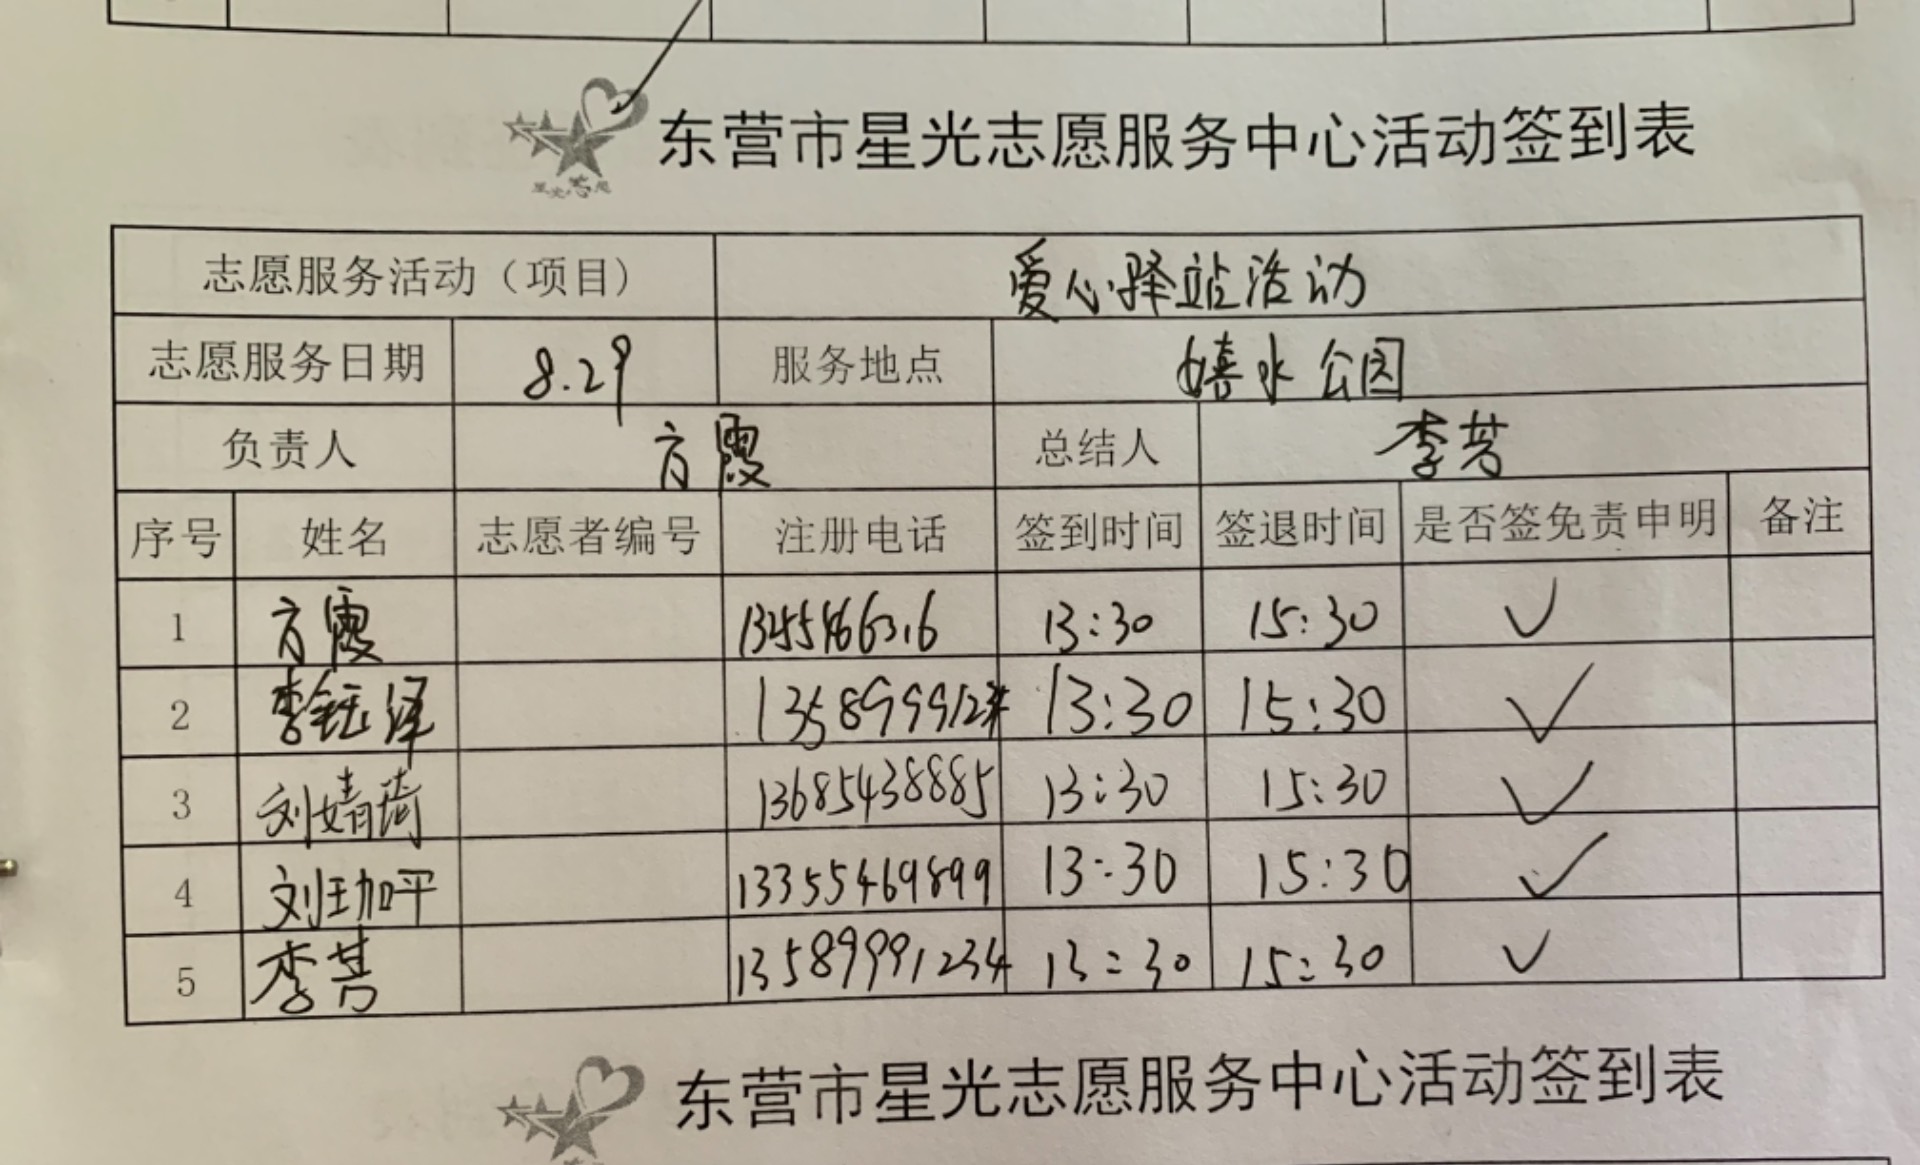 东营市星光志愿服务中心活动签到表
志愿服务活动（项目） 爱心驿站活动
志愿服务日期 8.29 服务地点 嬉水公园
负责人 方霞 总结人 李芳
序号 姓名 志愿者编号 注册电话 签到时间 签退时间 是否签免责申明 备注
1 方霞 13:30 15:30 ✓
2 李钰泽 13:30 15:30 ✓
3 刘婧琦 13685438885 13:30 15:30 ✓
4 刘珈平 13355469899 13:30 15:30 ✓
5 李芳 13589991234 13:30 15:30 ✓
东营市星光志愿服务中心活动签到表